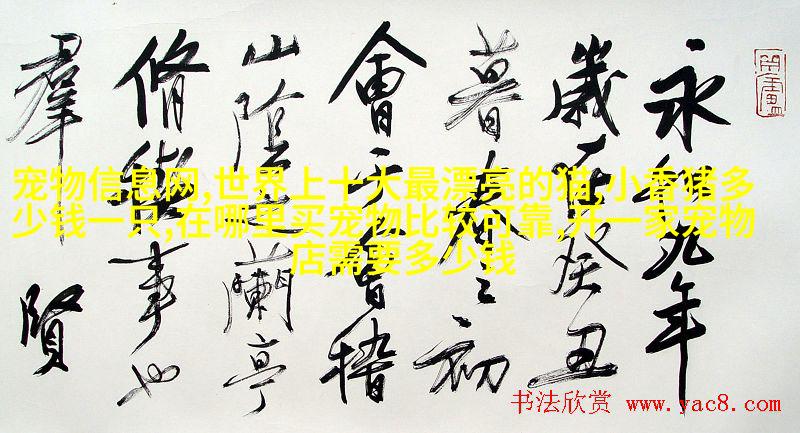 永和九年
歲在癸丑
暮春之初
會于會稽
山陰之蘭亭
脩禊事也
羣賢
宠物信息网,世界上十大最漂亮的猫,小香猪多
少钱一只,在哪里买宠物比较可靠,开一家宠物
店需要多少钱
书法欣赏 www.yac8.com